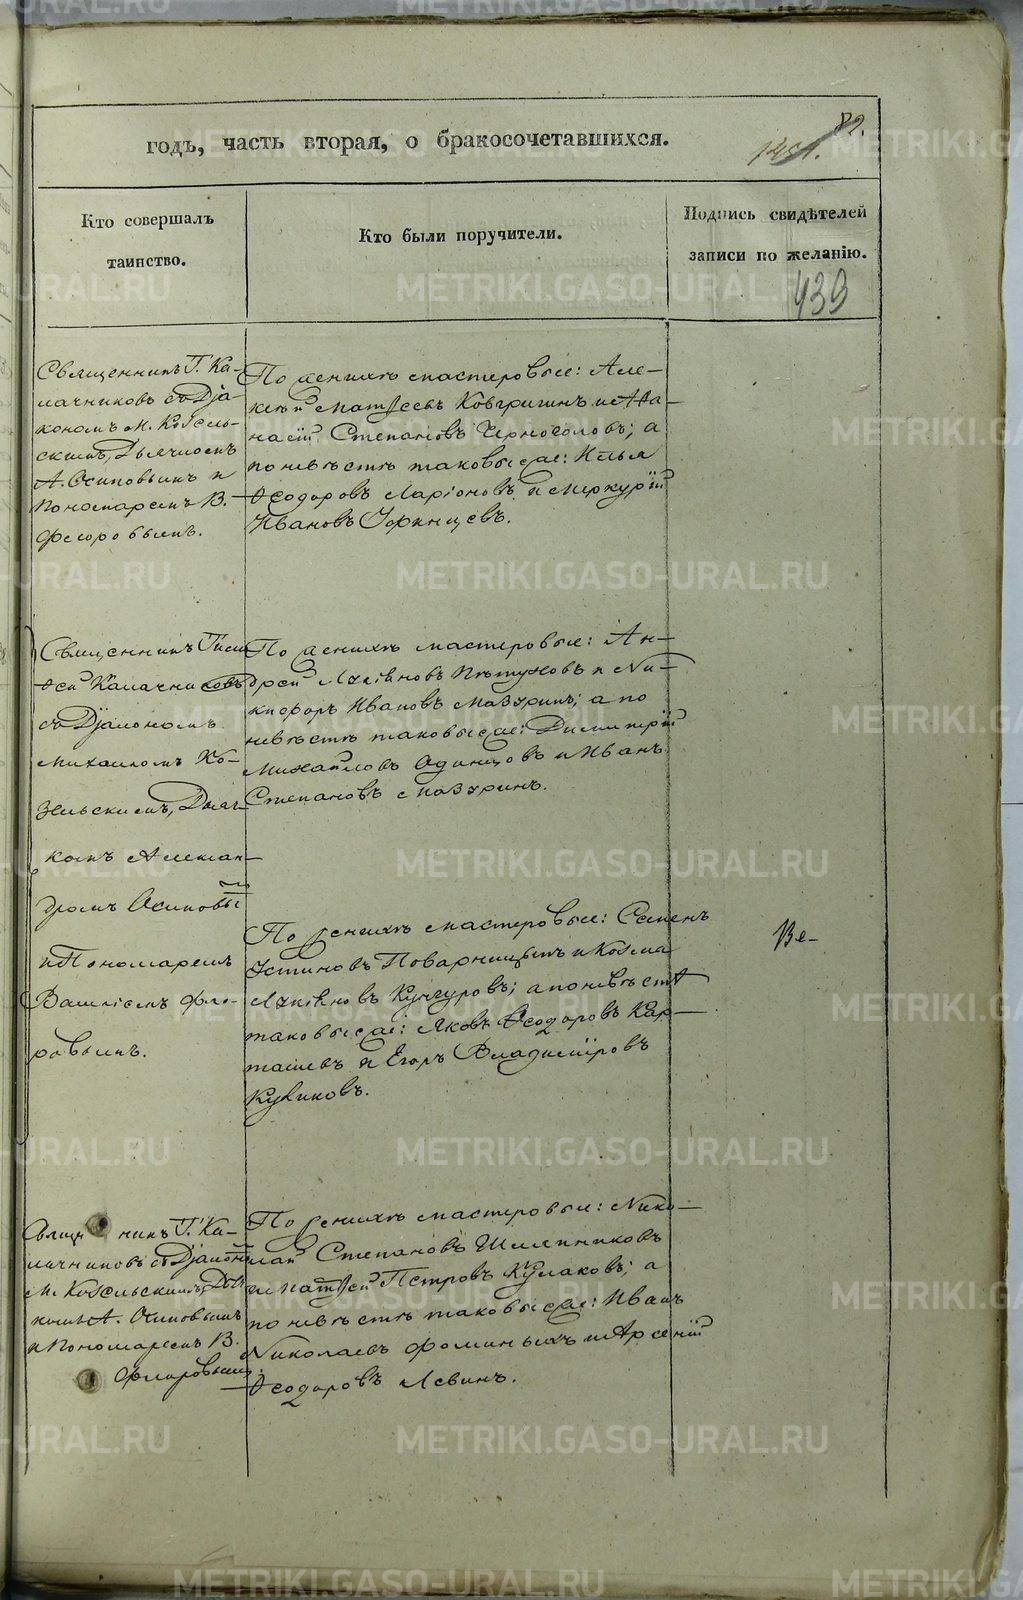 годъ, часть вторая, о бракосочетавшихся.
82.
Кто совершалъ
таинство.
Кто были поручители.
Подпись свидѣтелей
записи по желанію.
439
Священникъ Г. Ка-
лачниковъ съ Дја-
кономъ М. Козель-
скимъ, Дьячкомъ
А. Осиповымъ и
Пономаремъ В.
Флоровымъ.
По женихѣ мастеровые: Але-
ксѣй Матѳеевъ Ковригинъ и Аѳа-
насій Степановъ Черноголовъ; а
по невѣстѣ таковые же: Илья
Ѳеодоровъ Ларіоновъ и Меркурій
Ивановъ
Священникъ
Калачниковъ
съ Дјакономъ
Михаиломъ Ко-
зельскимъ, Дьяч-
комъ Алексан-
дромъ Осиповы
и Пономаремъ
Василіемъ Фло-
ровымъ.
По женихѣ мастеровые: Ан-
дрей Лукіяновъ Пѣтуховъ и Ни-
кифоръ Ивановъ Мазуринъ; а по
невѣстѣ таковые же: Димитрій
Михайловъ Одинцовъ и Иванъ
Степановъ Мазуринъ.
По женихѣ мастеровые: Семенъ
Устиновъ Поварницынъ и Козма
Лукіяновъ Кунгуровъ; а по невѣстѣ
таковые же: Яковъ Ѳеодоровъ Кар-
ташевъ и Егоръ Владиміровъ
Куликовъ.
Ве-
Священникъ Г. Ка-
лачниковъ съ Дјакономъ
М. Козельскимъ, Дья
комъ А. Осиповымъ
и Пономаремъ В.
Флоровымъ.
По женихѣ мастеровые: Нико-
лай Степановъ Шиляниковъ
и Матѳей Петровъ Кулаковъ; а
по невѣстѣ таковые же: Иванъ
Николаевъ Фоминыхъ и Арсеній
Ѳеодоровъ Левинъ.
METRIKI.GASO-URAL.RU